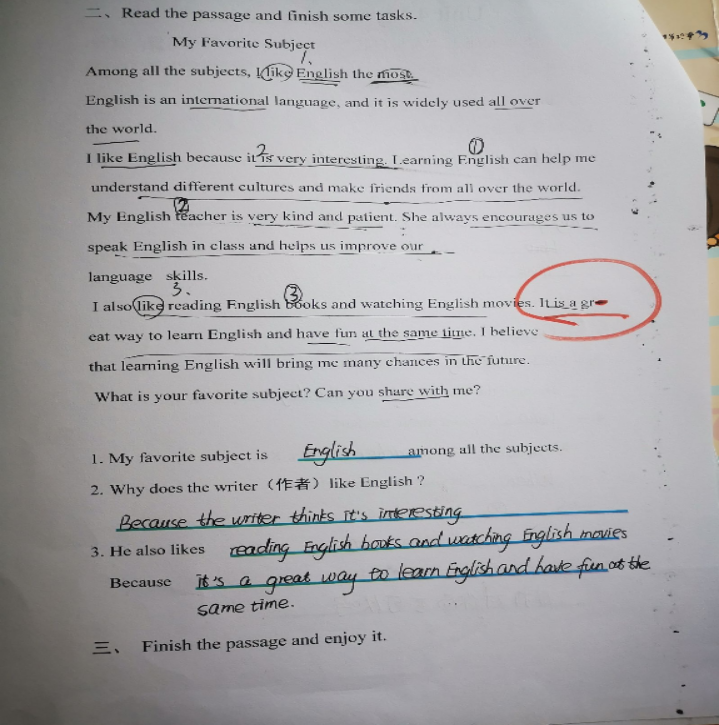 二、Read the passage and finish some tasks.
My Favorite Subject
1.
Among all the subjects, I like English the most.
English is an international language, and it is widely used all over
the world.
2 ①
I like English because it is very interesting. Learning English can help me
understand different cultures and make friends from all over the world.
②
My English teacher is very kind and patient. She always encourages us to
speak English in class and helps us improve our
language skills.
3. ③
I also like reading English books and watching English movies. It is a gr
eat way to learn English and have fun at the same time. I believe
that learning English will bring me many chances in the future.
What is your favorite subject? Can you share with me?
1. My favorite subject is English among all the subjects.
2. Why does the writer（作者）like English ?
Because the writer thinks it's interesting
3. He also likes reading English books and watching English movies
Because it's a great way to learn English and have fun at the
same time.
三、 Finish the passage and enjoy it.